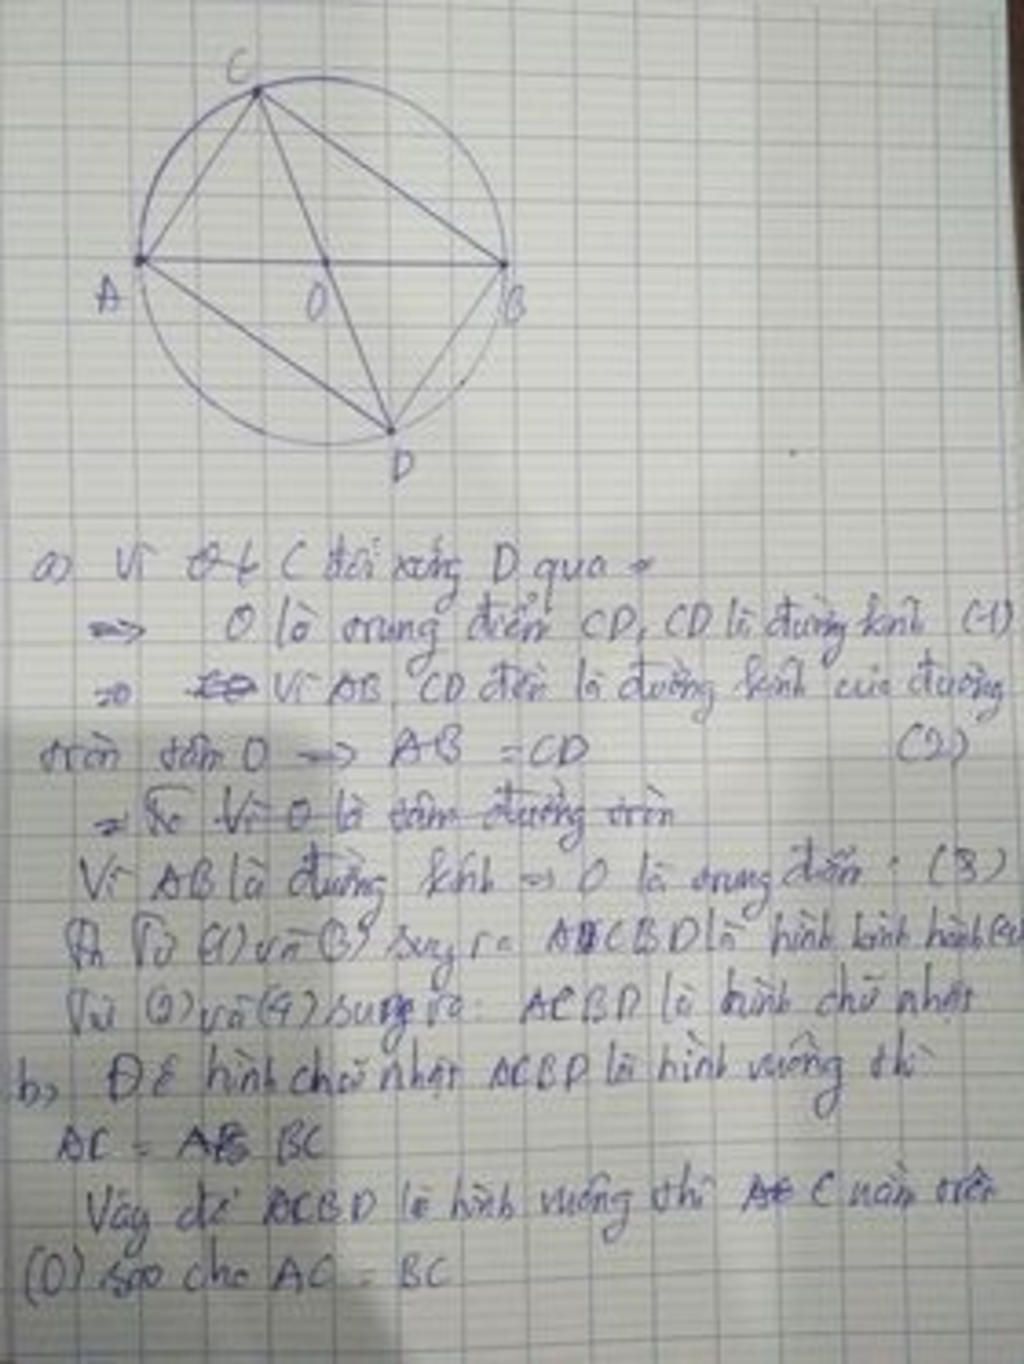 C
A
O
B
D
a) Vì C đối xứng D qua
=> O là trung điểm CD, CD là đường kính (1)
=> Vì AB, CD đều là đường kính của đường
tròn tâm O => AB = CD (2)
=> Vì O là tâm đường tròn
Vì AB là đường kính => O là trung điểm (3)
Từ (1) và (3) suy ra ACBD là hình bình hành (4)
Từ (2) và (4) suy ra ACBD là hình chữ nhật
b) Để hình chữ nhật ACBD là hình vuông thì
AC = BC
Vậy để ACBD là hình vuông thì C nằm trên
(O) sao cho AC = BC